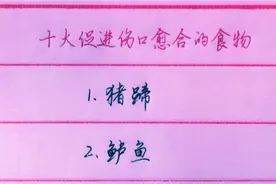 十大促进伤口愈合的食物
1.猪蹄
2.鲈鱼